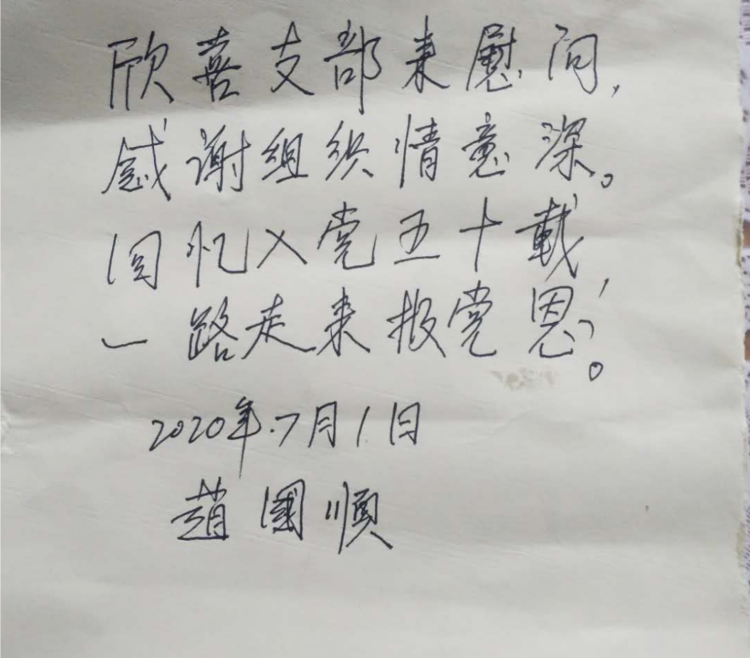 欣喜支部来慰问,
感谢组织情意深。
回忆入党五十载
一路走来报党恩。
2020年.7月1日
趙國順